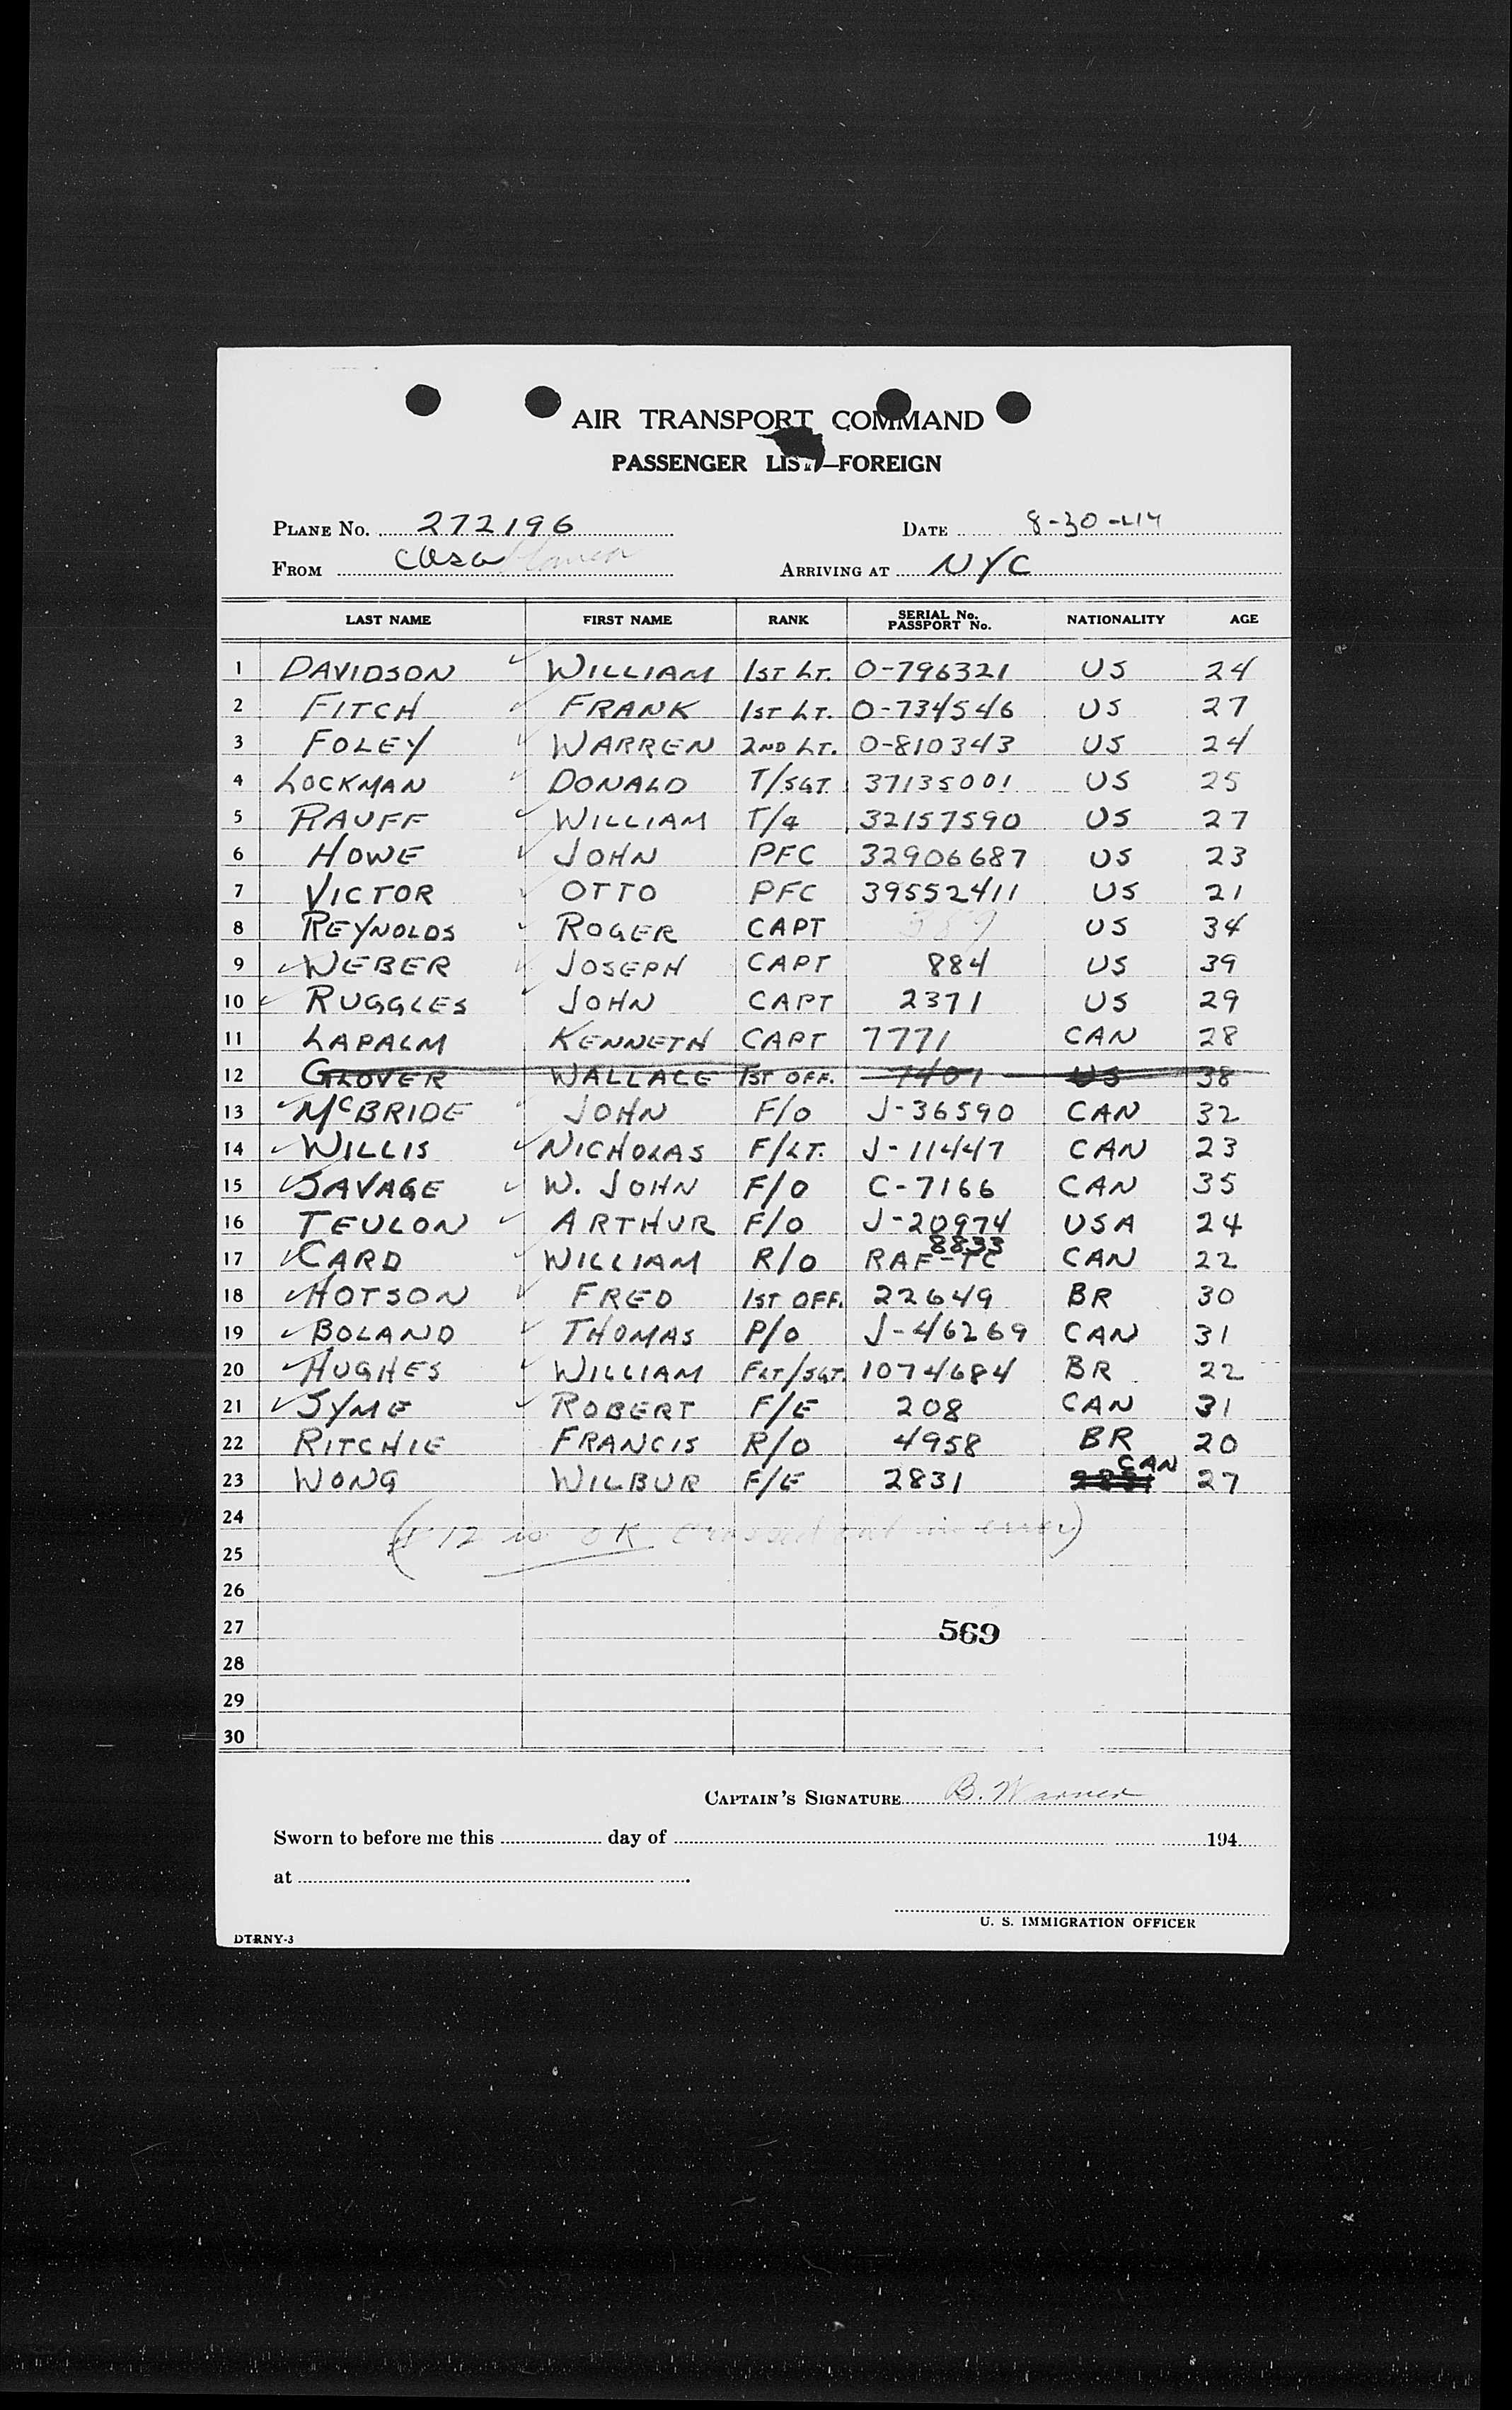 AIR TRANSPORT COMMAND
PASSENGER LIST—FOREIGN
PLANE No. 272196 DATE 8-30-44
FROM Casablanca ARRIVING AT NYC
LAST NAME FIRST NAME RANK SERIAL No. PASSPORT No. NATIONALITY AGE
1 DAVIDSON WILLIAM 1ST LT. O-796321 US 24
2 FITCH FRANK 1ST LT. O-734546 US 27
3 FOLEY WARREN 2ND LT. O-810343 US 24
4 LOCKMAN DONALD T/SGT. 37135001 US 25
5 RAUFF WILLIAM T/4 32157590 US 27
6 HOWE JOHN PFC 32906687 US 23
7 VICTOR OTTO PFC 39552411 US 21
8 REYNOLDS ROGER CAPT 389 US 34
9 WEBER JOSEPH CAPT 884 US 39
10 RUGGLES JOHN CAPT 2371 US 29
11 LAPALM KENNETH CAPT 7771 CAN 28
12 GLOVER WALLACE 1ST OFF. 7401 US 38
13 McBRIDE JOHN F/O J-36590 CAN 32
14 WILLIS NICHOLAS F/LT. J-11447 CAN 23
15 SAVAGE W. JOHN F/O C-7166 CAN 35
16 TEULON ARTHUR F/O J-20974 USA 24
17 CARD WILLIAM R/O RAF-TC 8833 CAN 22
18 HOTSON FRED 1ST OFF. 22649 BR 30
19 BOLAND THOMAS P/O J-46269 CAN 31
20 HUGHES WILLIAM FLT/SGT. 1074684 BR 22
21 SYME ROBERT F/E 208 CAN 31
22 RITCHIE FRANCIS R/O 4958 BR 20
23 WONG WILBUR F/E 2831 2831 CAN 27
24
(# 12 is OK crossed out in error)
25
26
27 569
28
29
30
CAPTAIN'S SIGNATURE B. Warner
Sworn to before me this day of 194
at
U. S. IMMIGRATION OFFICER
DTRNY-3